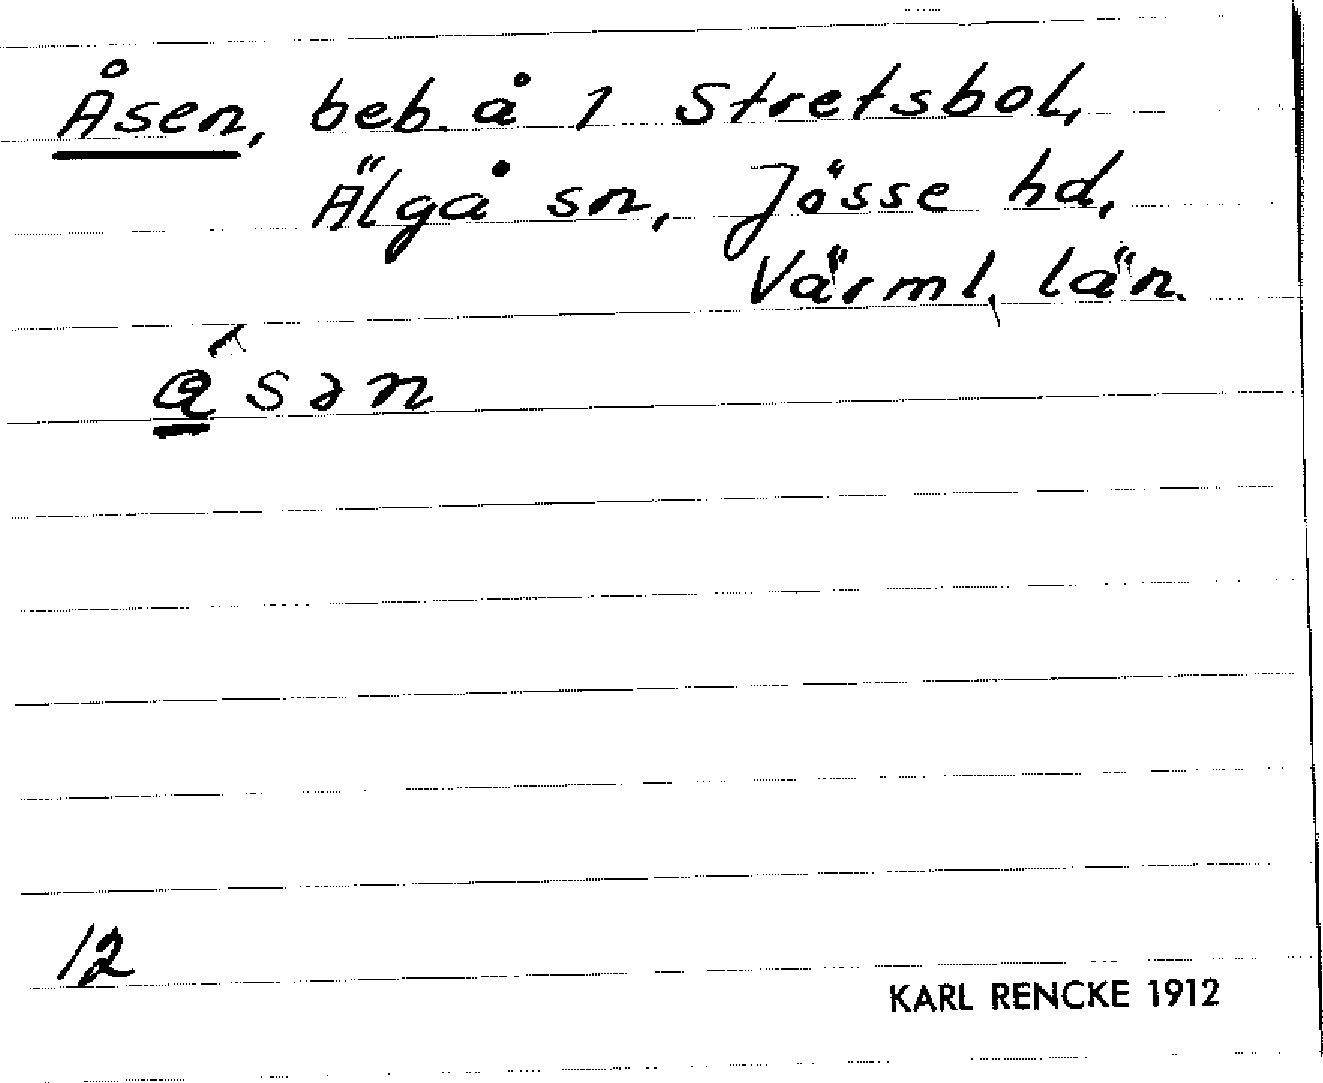 Åsen, beb. å 1 Stretsbol,
Älgå sn, Jösse hd,
Värml. län.
åsən
12
KARL RENCKE 1912